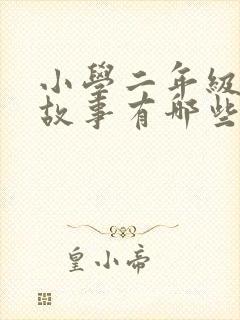 小學二年級
故事有哪些
皇小帝